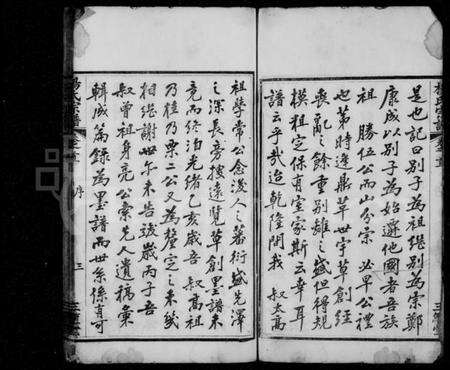 是也記曰別子為祖繼別為宗鄭
康成以別子為始遷他國者吾族
祖 勝位公而山分宗 必早公禮
也第時逢鼎革世宇草創經
喪亂之餘重別離之盛但得規
模粗定保有室家斯云幸耳
譜云乎哉迨乾隆間我 叔太高
祖學常公念後人之蕃衍盛先澤
之深長旁搜遠覽草創墨譜未
竟而終泊光緒乙亥歲吾叔高祖
乃桂乃栗二公又為釐定之未幾
相继謝世尔未告竣歲丙子吾
叔曾祖身亮公彙先人遺稿彙
輯成篇錄為墨譜而世系係有可
序
三